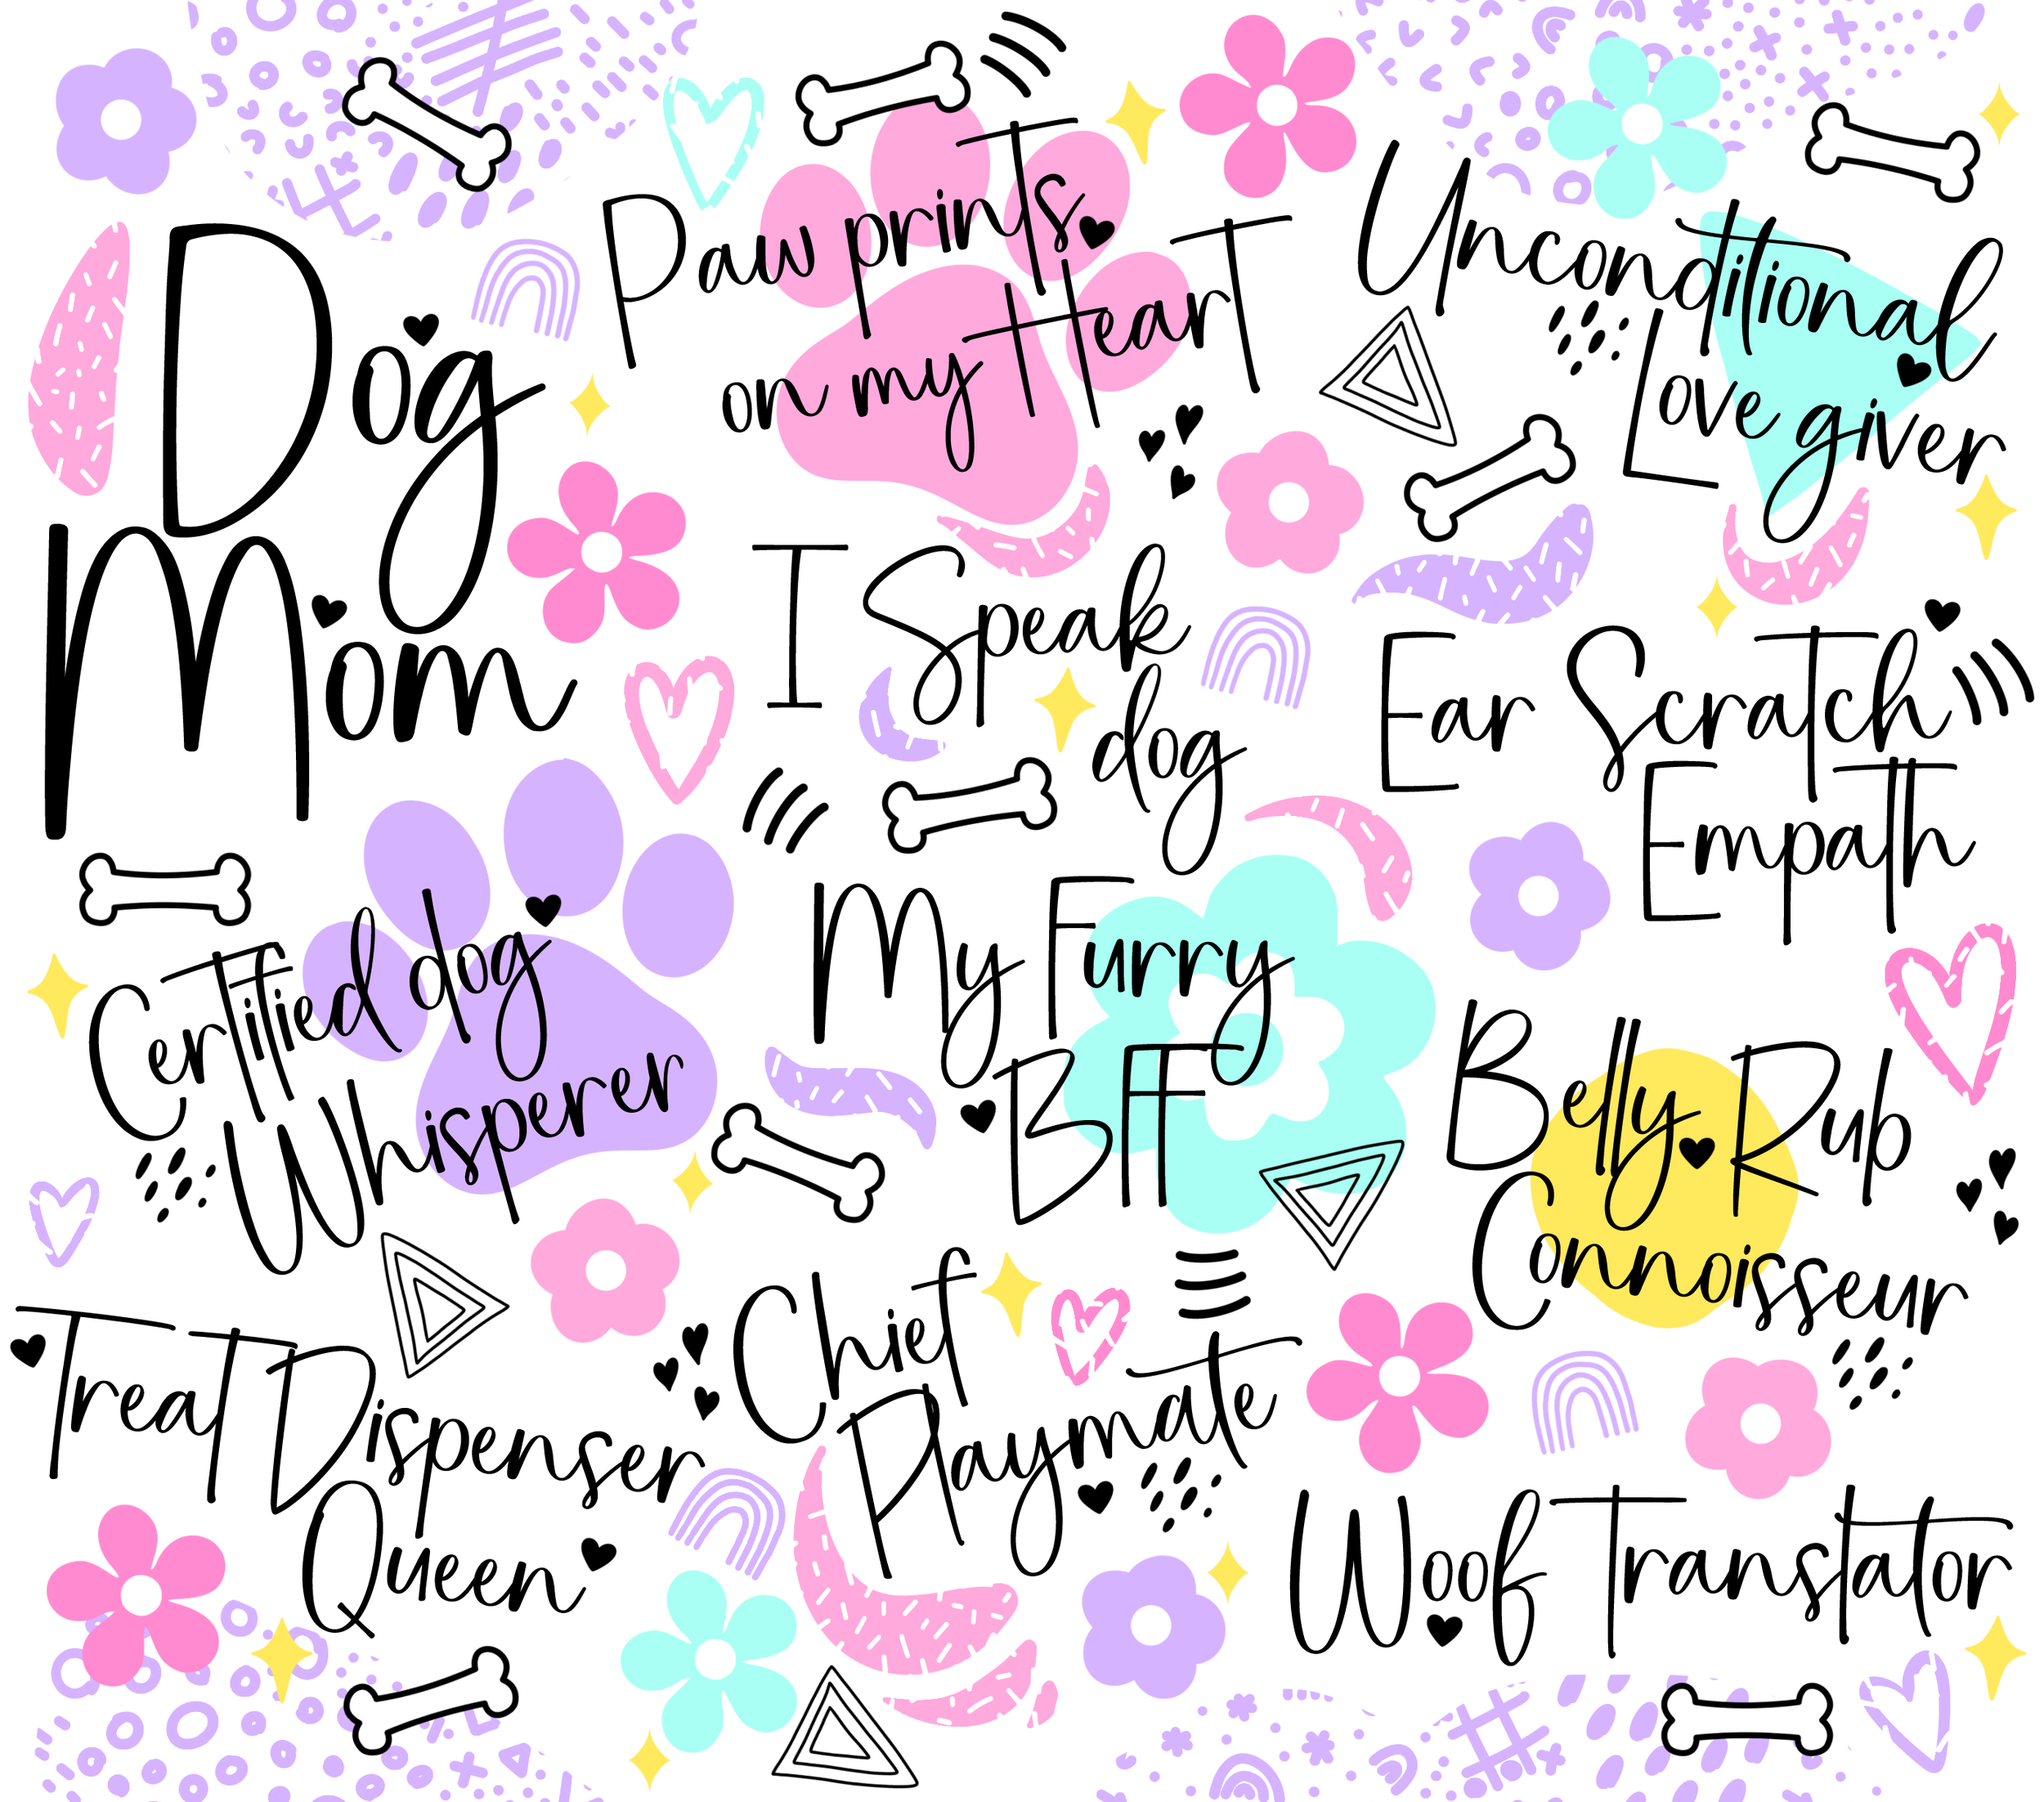 Dog
Mom
Paw prints
on my Heart
Unconditional
Love giver
I Speak
dog
Ear Scratch
Empath
Certified dog
Whisperer
My Furry
BFF
Belly Rub
Connoisseur
Treat Dispenser
Queen
Chief
Playmate
Woof Translator